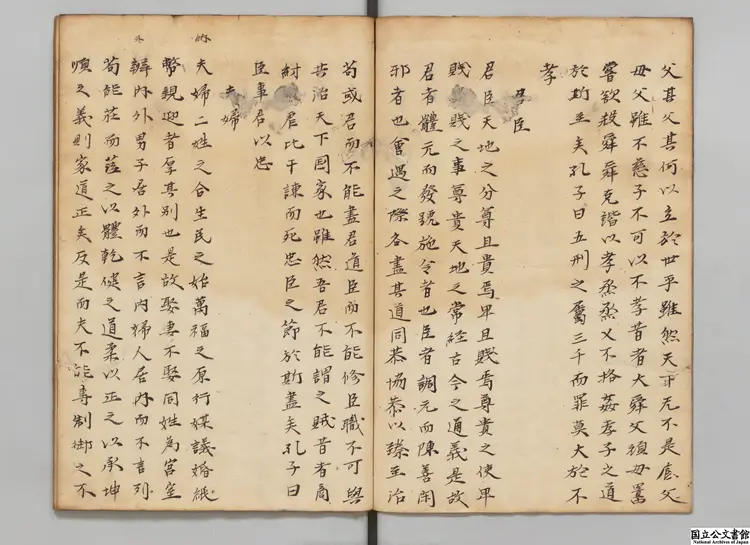 父其父其何以立於世乎雖然天下无不是底父
母父雖不慈子不可以不孝昔者大舜父頑母嚚
嘗欲殺舜舜克諧以孝烝烝乂不格姦孝子之道
於斯至矣孔子曰五刑之屬三千而罪莫大於不
孝
君臣
君臣天地之分尊且貴焉卑且賤焉尊貴之使卑
賤卑賤之事尊貴天地之常經古今之通義是故
君者體元而發號施令者也臣者調元而陳善閉
邪者也會遇之際各盡其道同恭協恭以臻至治
苟或君而不能盡君道臣而不能修臣職不可與
共治天下國家也雖然吾君不能謂之賊昔者商
紂虐比干諫而死忠臣之節於斯盡矣孔子曰
臣事君以忠
夫婦
納
夫婦二姓之合生民之始萬福之原行媒議婚紙
幣親迎者厚其別也是故娶妻不娶同姓為宮室
外
辨內外男子居外而不言內婦人居內而不言列
苟能莊而莅之以體乾健之道柔以正之以承坤
順之義則家道正矣反是而夫不能專制御之不
国立公文書館
National Archives of Japan